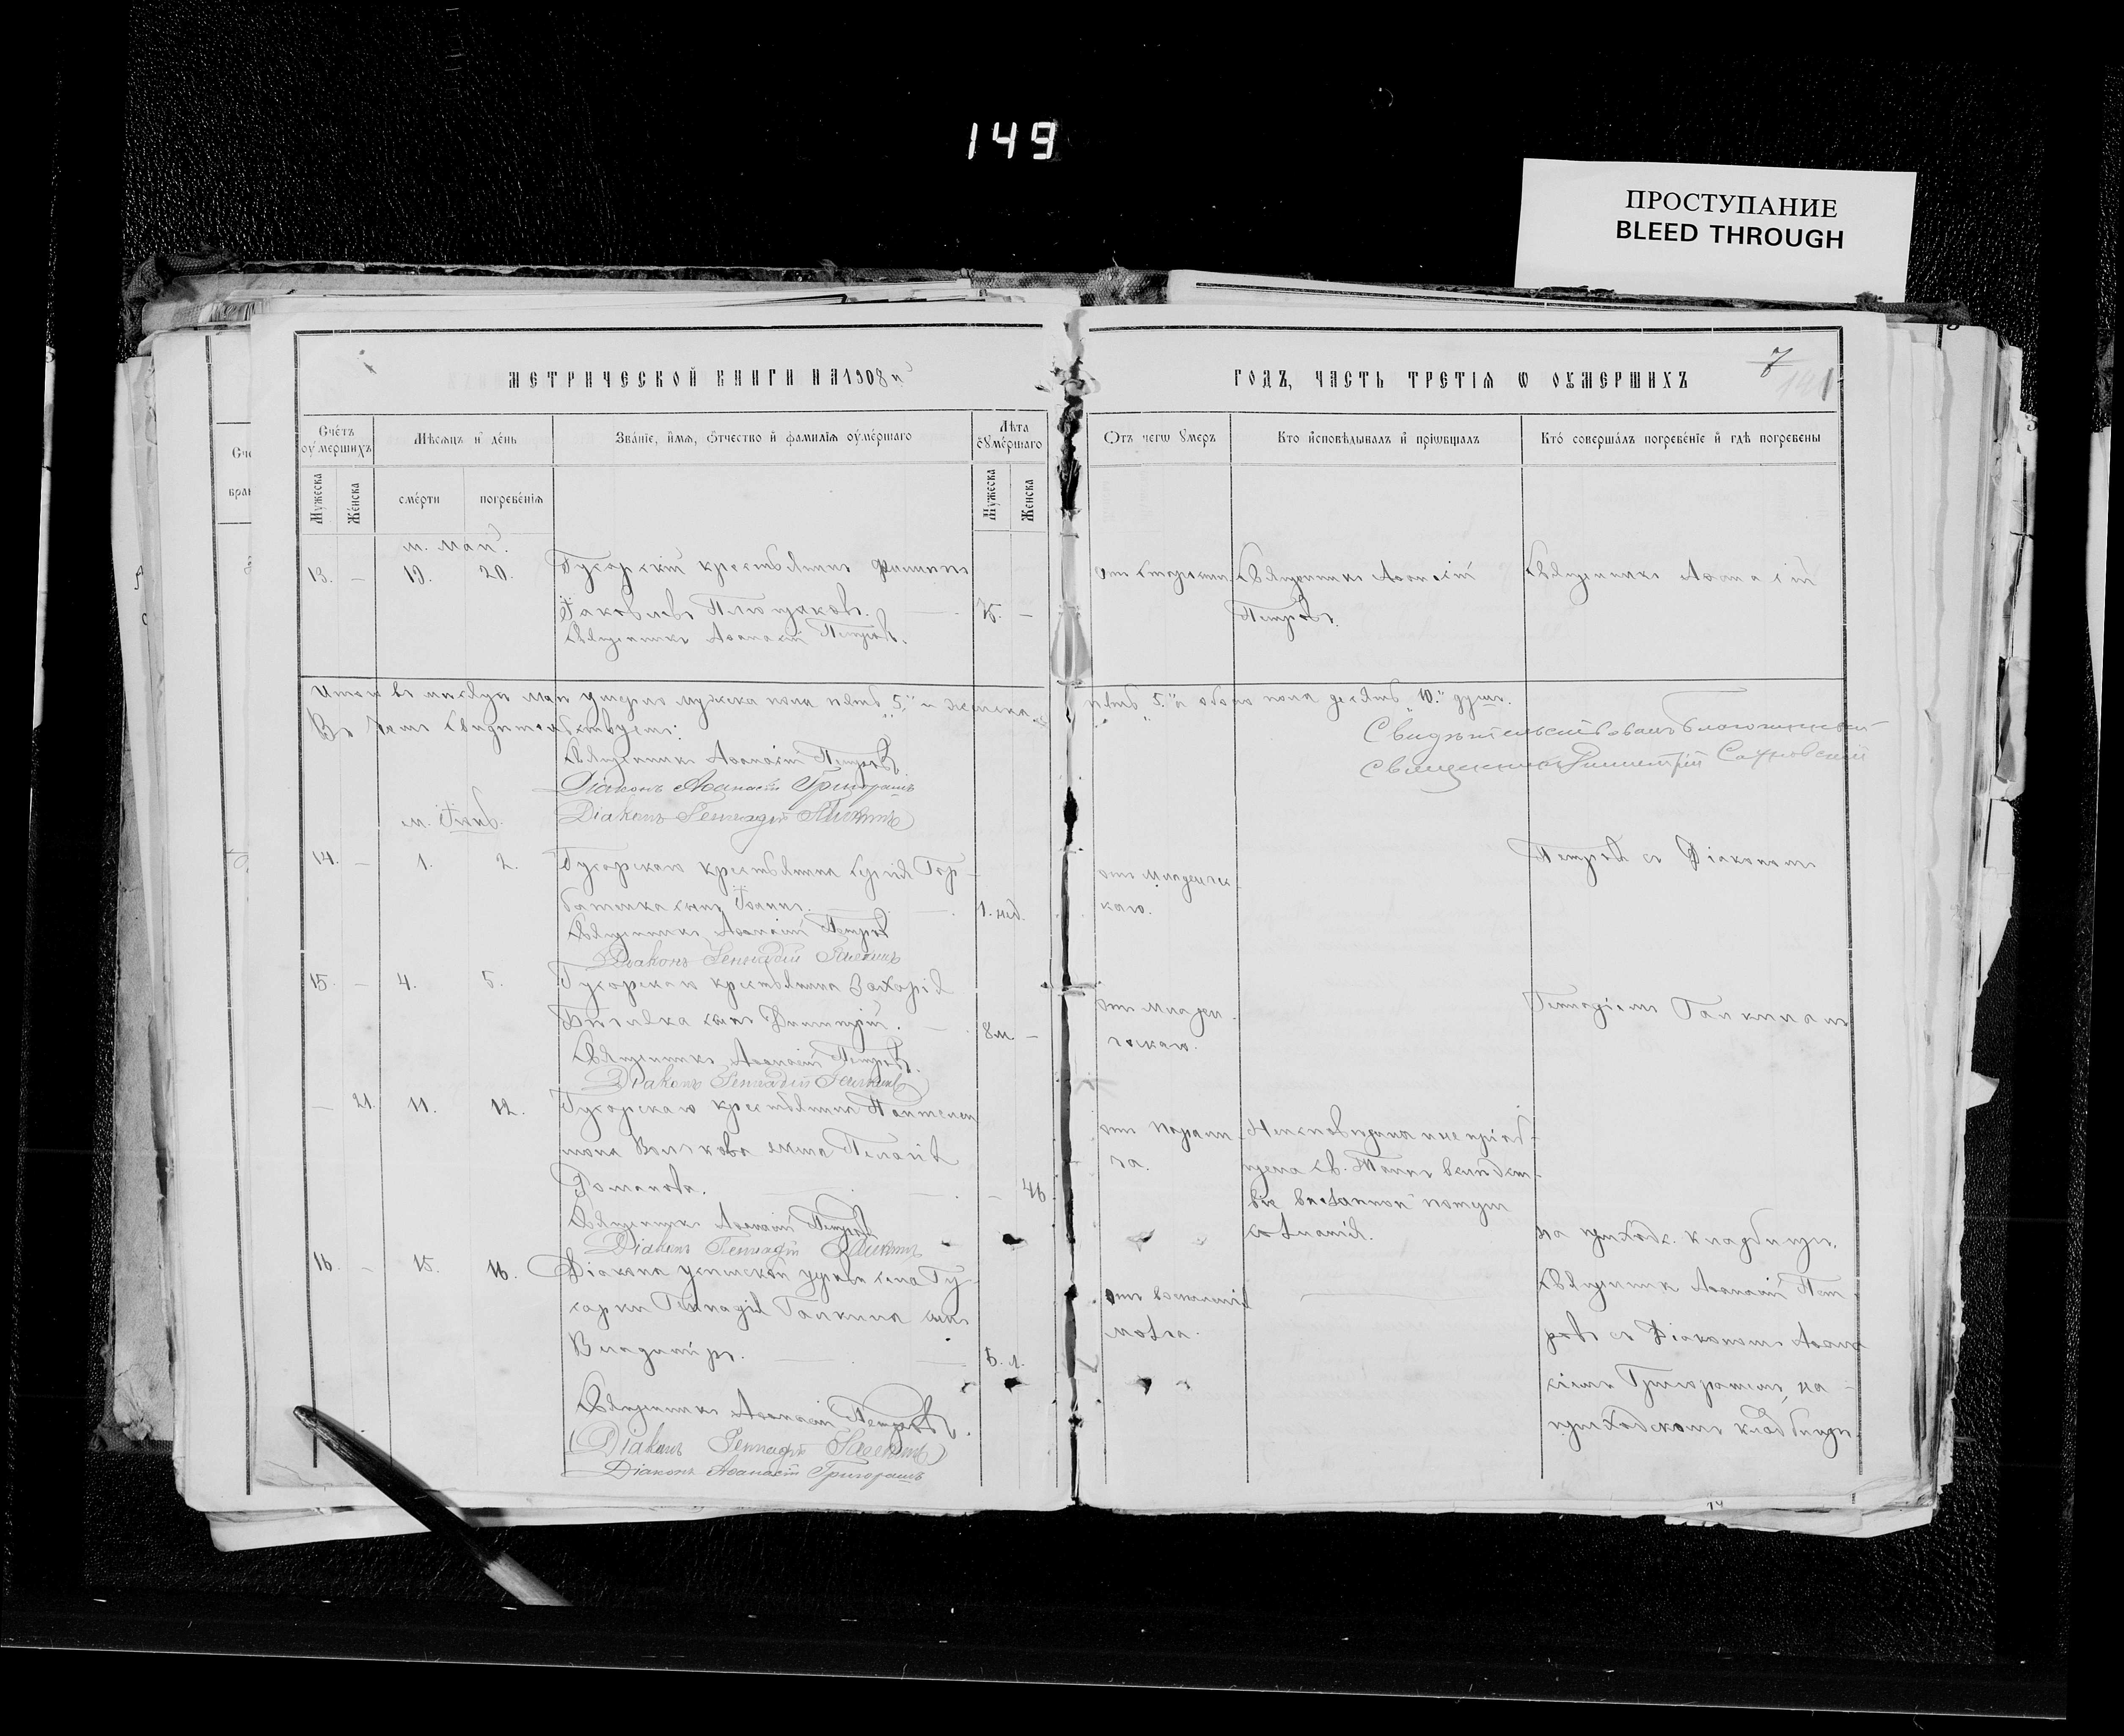 149
ПРОСТУПАНИЕ
BLEED THROUGH
МЕТРИЧЕСКОЙ КНИГИ НА 1908 й
ГОДЪ, ЧАСТЬ ТРЕТІѦ Ѡ ОУМЕРШИХЪ
7
Счётъ оумершихъ
Мѣсяцъ и день
Званіе, имя, отчество и фамилія оумершаго
Лѣта оумершаго
Отъ чегѡ умеръ
Кто исповѣдывалъ и пріѡбщалъ
Кто совершалъ погребеніе и гдѣ погребены
Мужеска
Женска
смерти
погребенія
Мужеска
Женска
м. Май.
13. — 19. 20. Гусарскій крестьянинъ Филиппъ
Іаковлевъ Плющаковъ. 75. —
Священникъ Аѳанасій Петровъ.
отъ старости
Священникъ Аѳанасій
Петровъ.
Священникъ Аѳанасій
Итого въ мѣсяцѣ маѣ умерло мужеска пола пять „5“ и женска
пять „5“ а обоего пола десять „10“ душъ.
Въ чемъ свидѣтельствуемъ:
Священникъ Аѳанасій Петровъ
Діаконъ Аѳанасій Григорашъ
Діаконъ Геннадій Галкинъ
Свидѣтельствовалъ благочинный
священникъ Димитрій Сахновскій
м. Іюнь.
14. — 1. 2. Гусарскаго крестьянина Сергія Гор-
батенка сынъ Іоаннъ. 1. нед.
Священникъ Аѳанасій Петровъ
Діаконъ Геннадій Галкинъ
отъ младенчес-
каго.
Петровъ съ Діакономъ
15. — 4. 5. Гусарскаго крестьянина Захарія
сынъ Димитрій. 8 м. —
Священникъ Аѳанасій Петровъ
Діаконъ Геннадій Галкинъ
отъ младен-
ческаго.
Геннадіемъ Галкинымъ
— 21. 11. 12. Гусарскаго крестьянина Пантелей-
мона Волкова жена Пелагія
Романова. — 46
Священникъ Аѳанасій Петровъ
Діаконъ Геннадій Галкинъ
отъ парали-
ча.
Неисповѣдана и не пріоб-
щена св. Таинъ вслѣдст-
віе внезапной потери
сознанія.
на приходск. кладбищѣ.
16. — 15. 16. Діакона Успенской церкви села Гу-
сарки Геннадія Галкина сынъ
Владиміръ. 5. л.
Священникъ Аѳанасій Петровъ.
Діаконъ Геннадій Галкинъ
Діаконъ Аѳанасій Григорашъ
отъ воспаленія
мозга.
Священник Аѳанасій Пет-
ровъ съ Діакономъ Аѳана-
сіемъ Григорашемъ, на
приходскомъ кладбищѣ.